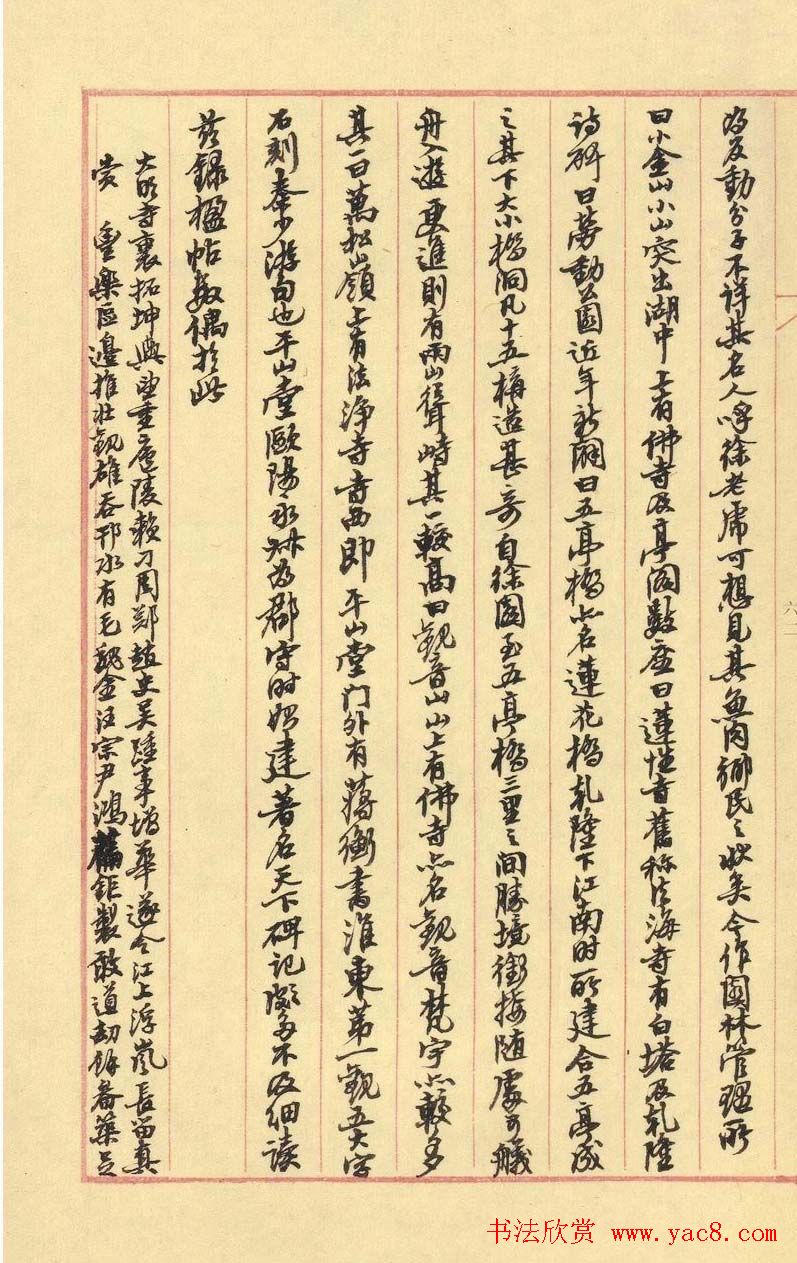 為反動分子不詳其名人呼徐老虎可想見其魚肉鄉民之狀矣今作園林管理所
曰小金山小山突出湖中上有佛寺及亭閣數座曰蓮性寺舊称法海寺有白塔及乾隆
詩碑曰勞動公園近年新闢曰五亭橋亦名蓮花橋乾隆下江南时所建合五亭成
之其下大小橋洞凡十五構造甚奇自徐園至五亭橋三里之间勝境銜接随處可艤
舟入遊再進則有兩山聳峙其一較高曰觀音山山上有佛寺亦名觀音梵宇亦較多
其一曰萬松嶺上有法淨寺寺西即平山堂门外有蔣衡書淮東第一觀五大字
石刻秦少游句也平山堂歐陽永叔為郡守时始建著名天下碑记頗多不及细读
茲録楹帖數偶於此
大明寺裏拓坤輿望重廬陵赖刁周鄭趙史吴踵事增華遂令江上浮嵐長留真
賞 豐樂區邊推壯觀雄吞邗水有毛魏金汪宗尹鴻舊鉅製敢道劫餘畚築足
六二
书法欣赏 www.yac8.com